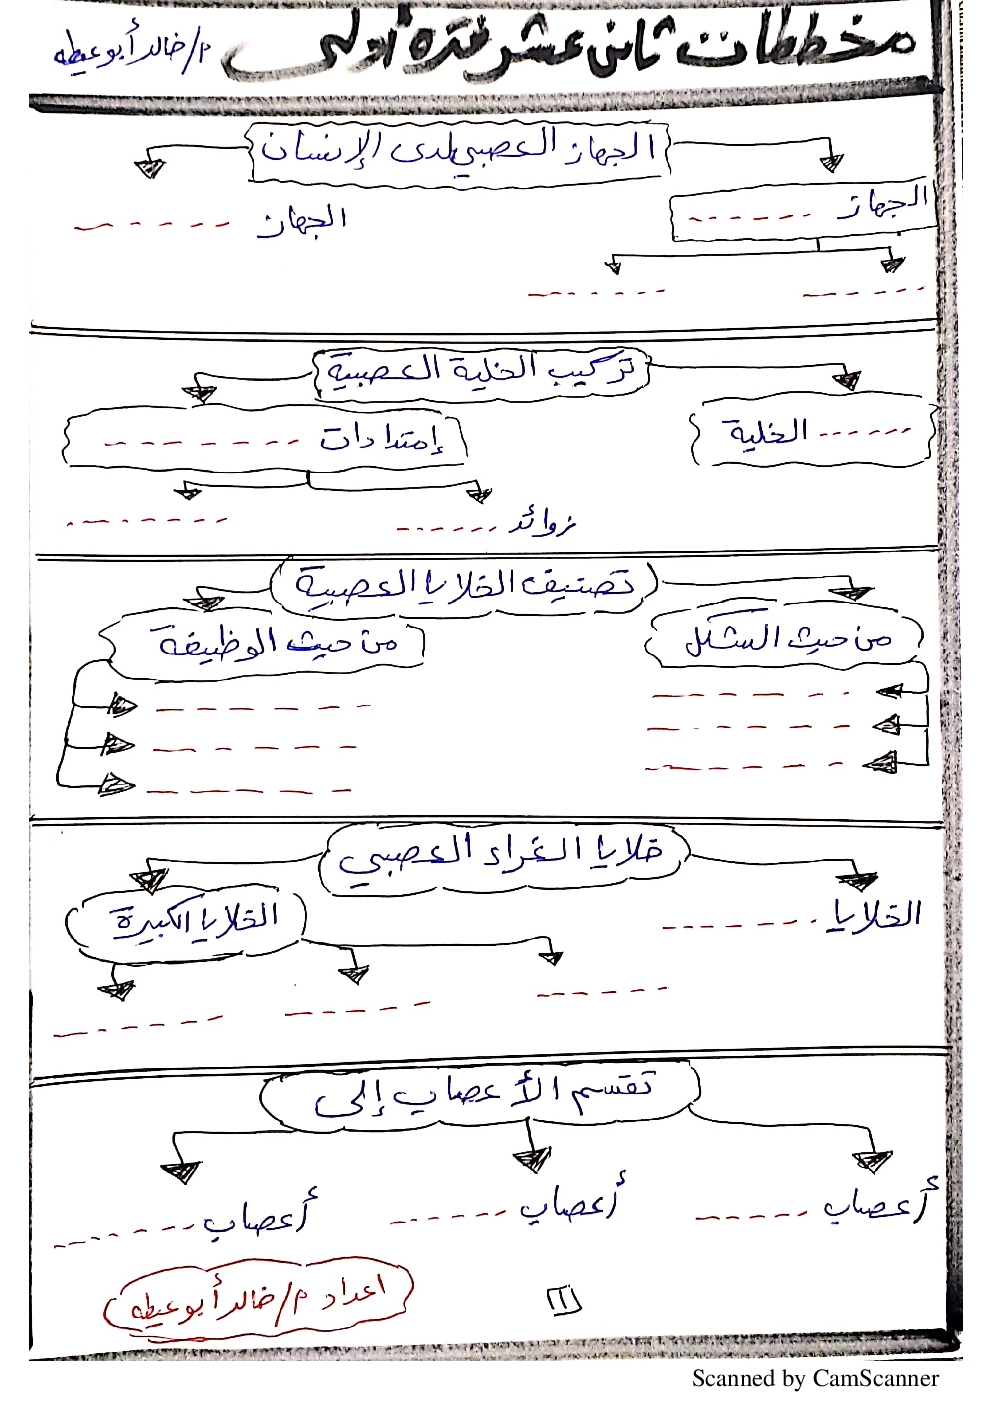 مخططات ثاني عشر فترة أولى م/خالد أبو عيطه
الجهاز العصبي لدى الإنسان
الجهاز ------
الجهاز ------
تركيب الخلية العصبية
------ الخلية
إمتدادات -------
زوائد ------
تصنيف الخلايا العصبية
من حيث الشكل
من حيث الوظيفة
خلايا الغراء العصبي
الخلايا ------
الخلايا الكبيرة
تقسم الأعصاب إلى
أعصاب -----
أعصاب ------
أعصاب ------
اعداد م/خالد أبو عيطه
Scanned by CamScanner